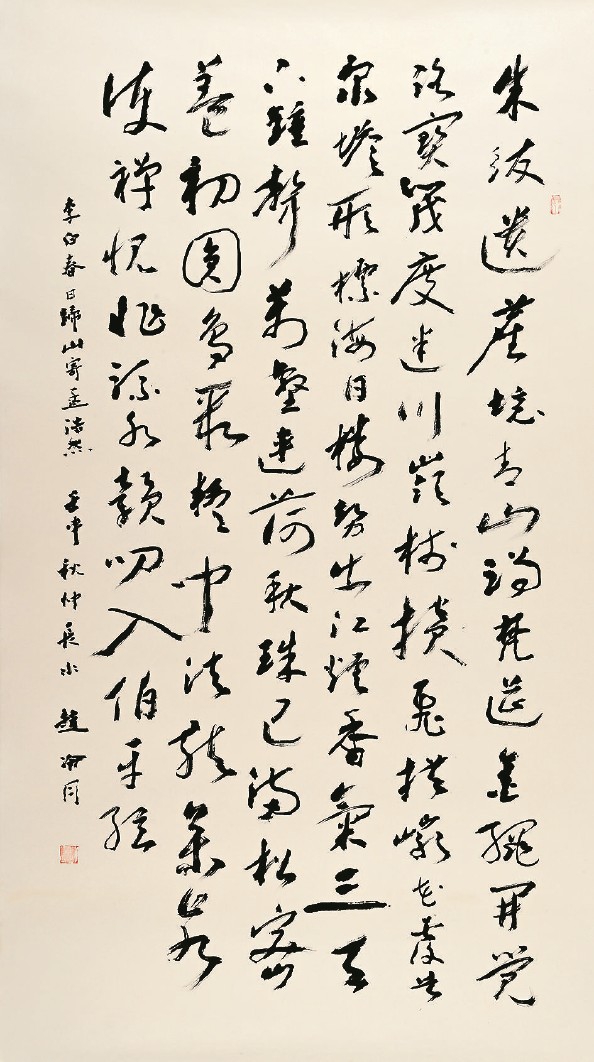 朱紱遺塵境青山謁梵筵金繩開覺
路寶筏度迷川嶺樹攢飛拱巖花覆谷
泉塔形標海日樓勢出江煙香氣三天
下鍾聲萬壑連荷秋珠已滿松密
蓋初圓鳥聚疑聞法龍參若
護禪愧非流水韻叨入伯牙弦
李白春日歸山寄孟浩然 壬申秋仲長水 趙冷月